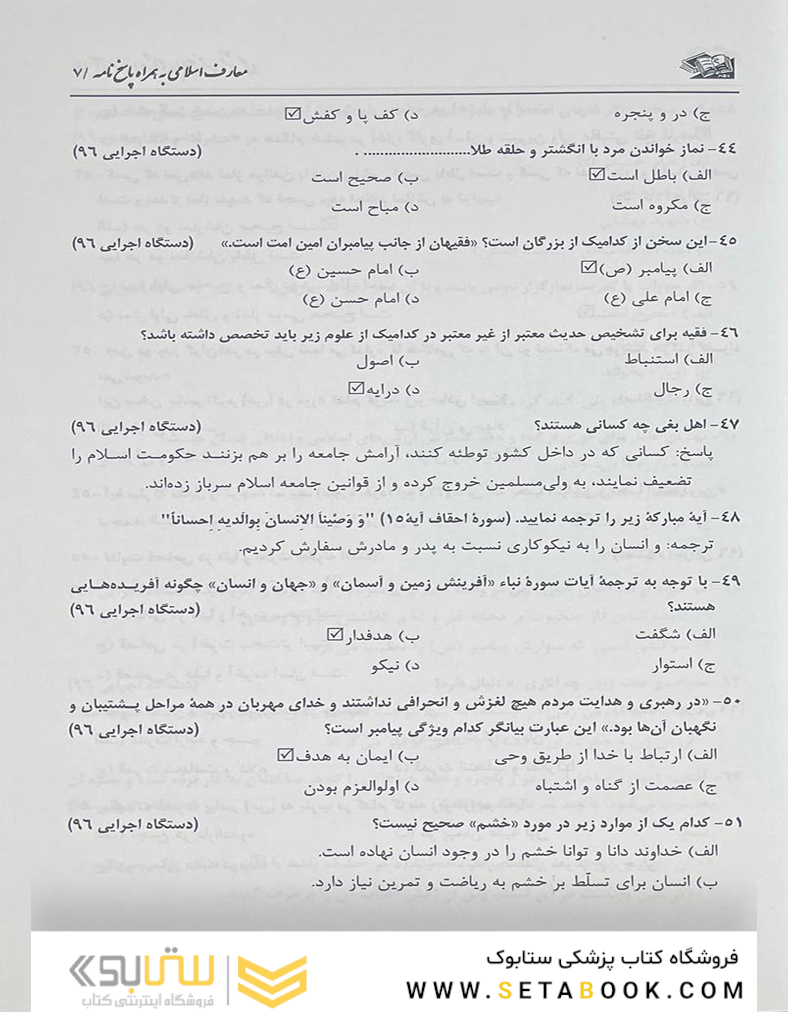 معارف اسلامی به همراه پاسخ نامه /۷
ج) در و پنجره د) کف پا و کفش☑
۴۴- نماز خواندن مرد با انگشتر و حلقه طلا.......................... . (دستگاه اجرایی ۹۶)
الف) باطل است☑ ب) صحیح است
ج) مکروه است د) مباح است
۴۵-این سخن از کدامیک از بزرگان است؟ «فقیهان از جانب پیامبران امین امت است.» (دستگاه اجرایی ۹۶)
الف) پیامبر (ص)☑ ب) امام حسین (ع)
ج) امام علی (ع) د) امام حسن (ع)
۴۶- فقیه برای تشخیص حدیث معتبر از غیر معتبر در کدامیک از علوم زیر باید تخصص داشته باشد؟
الف) استنباط ب) اصول
ج) رجال د) درایه☑
۴۷- اهل بغی چه کسانی هستند؟ (دستگاه اجرایی ۹۶)
پاسخ: کسانی که در داخل کشور توطئه کنند، آرامش جامعه را بر هم بزنند حکومت اسلام را
تضعیف نمایند، به ولی‌مسلمین خروج کرده و از قوانین جامعه اسلام سرباز زده‌اند.
۴۸- آیهٔ مبارکهٔ زیر را ترجمه نمایید. (سورهٔ احقاف آیهٔ ۱۵) "وَ وَصَّیناَ الاِنسانَ بِوالَدیهِ اِحساناً"
ترجمه: و انسان را به نیکوکاری نسبت به پدر و مادرش سفارش کردیم.
۴۹- با توجه به ترجمهٔ آیات سورهٔ نباء «آفرینش زمین و آسمان» و «جهان و انسان» چگونه آفریده‌هایی
هستند؟ (دستگاه اجرایی ۹۶)
الف) شگفت ب) هدفدار☑
ج) استوار د) نیکو
۵۰- «در رهبری و هدایت مردم هیچ لغزش و انحرافی نداشتند و خدای مهربان در همهٔ مراحل پشتیبان و
نگهبان آن‌ها بود.» این عبارت بیانگر کدام ویژگی پیامبر است؟ (دستگاه اجرایی ۹۶)
الف) ارتباط با خدا از طریق وحی ب) ایمان به هدف☑
ج) عصمت از گناه و اشتباه د) اولوالعزم بودن
۵۱- کدام یک از موارد زیر در مورد «خشم» صحیح نیست؟ (دستگاه اجرایی ۹۶)
الف) خداوند دانا و توانا خشم را در وجود انسان نهاده است.
ب) انسان برای تسلّط بر خشم به ریاضت و تمرین نیاز دارد.
فروشگاه کتاب پزشکی ستابوک
WWW.SETABOOK.COM
ستابوک
فروشگاه اینترنتی کتاب